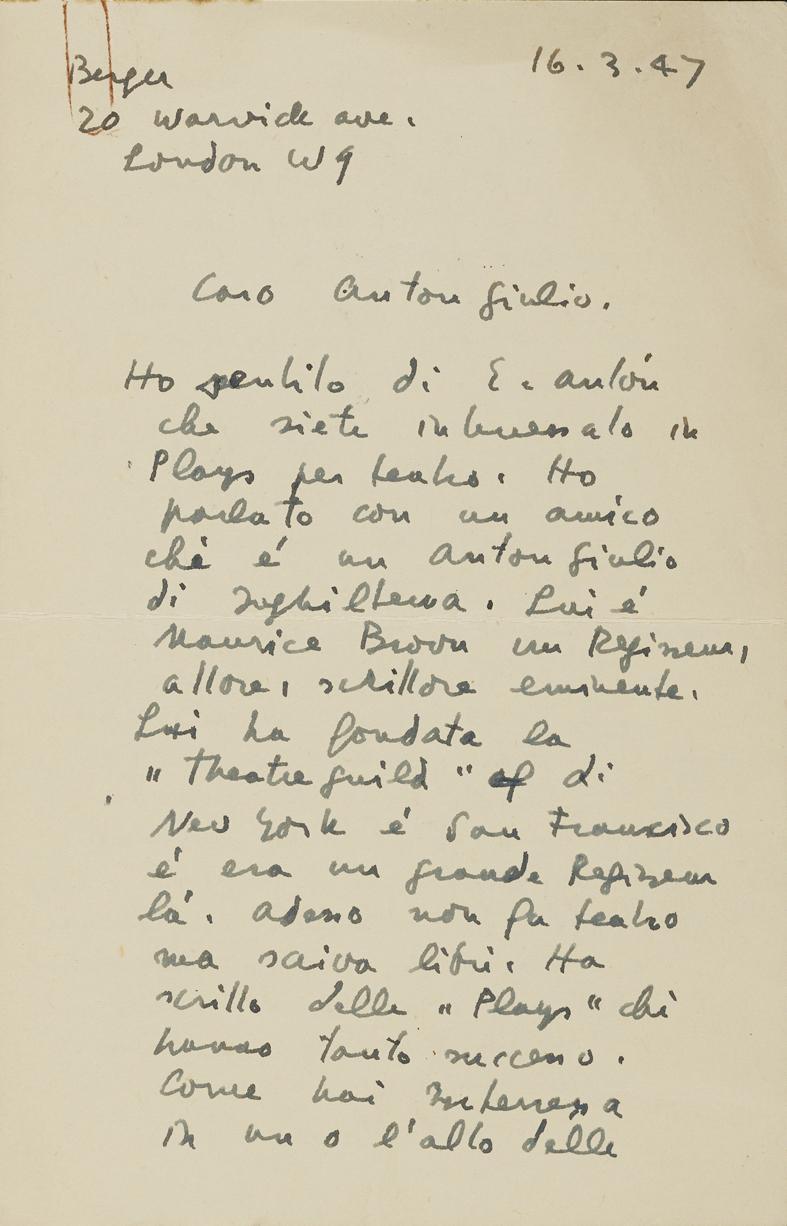 Berger
16.3.47
20 Warwick ave.
London W9
Caro Anton Giulio.
Ho sentito di E. Antón
che siete interessato in
Plays per teatro. Ho
parlato con un amico
chè é un Anton Giulio
di Inghilterra. Lui é
Maurice Brown un Regisseur,
attore, scrittore eminente.
Lui ha fondata la
"Theatre guild" of di
New York é San Francisco
é era un grande Regisseur
lá. Adesso non fa teatro
ma scriva libri. Ha
scritto delle "Plays" chi
hanno tanto successo.
Come hai Interressa
in un o l'alto delle